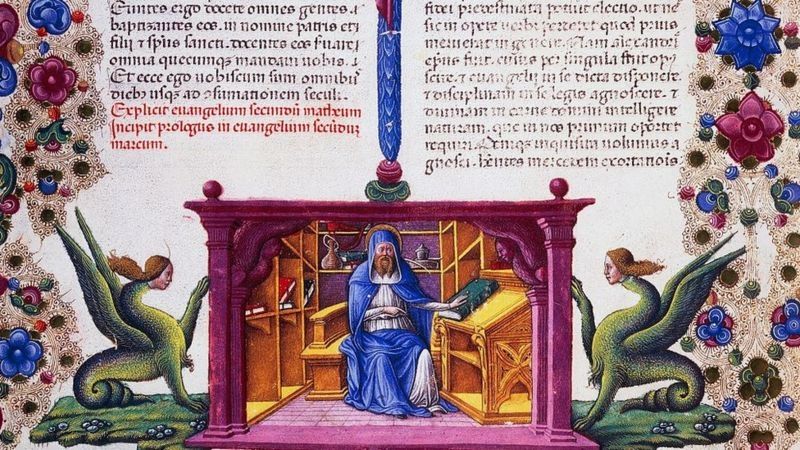 Euntes ergo docete omnes gentes
baptizantes eos. in nomine patris et
filii & spūs sancti. docentes eos
omnia quecumque mandaui uobis.
Et ecce ego uobiscum sum omnibꝰ
diebꝰ usqꝫ ad ꝯsumationem seculi.
Explicit euangelium secundū matheum
Incipit prologus in euangelium secūduz
marcum.
fidei predestinata potius electio. ut ne
sic in opere uerbi perderet quod prius
meruerat in genere. Nam alexandri
epus fuit. cuius per singula fuit opꝰ
scire. & euangelii in se dicta disponere
& disciplinam in se legis agnoscere. &
diuinam in carne domini intelligere
naturam. que in nos primum oportet
requiri. inquisita uolumus a
gnosci. mercedem exortationis